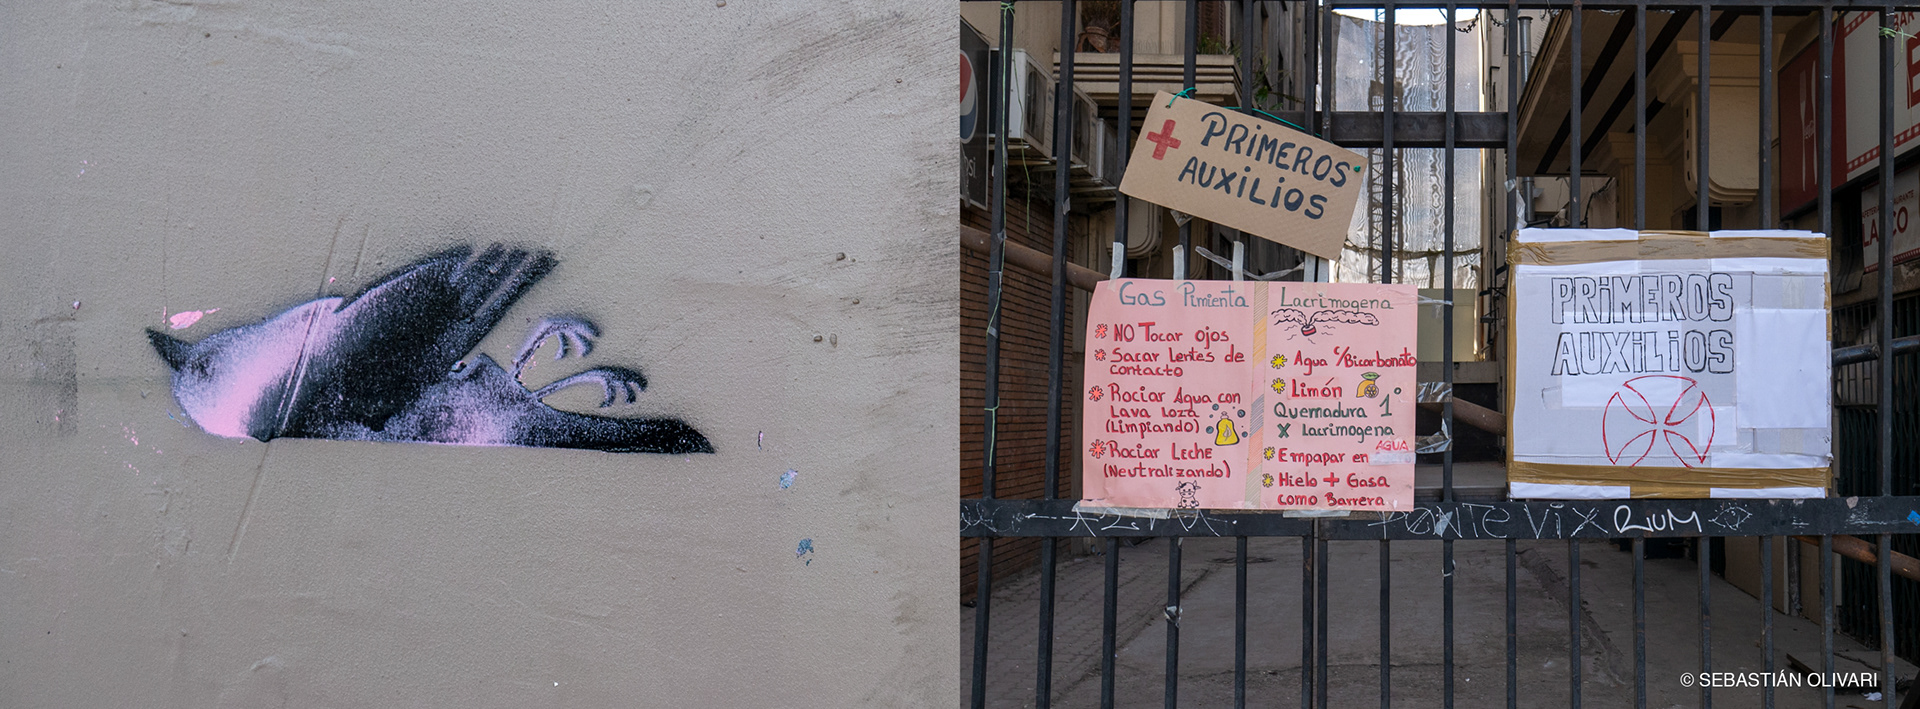 PRIMEROS
AUXILIOS
Gas Pimienta
NO Tocar ojos
Sacar Lentes de
contacto
Rociar Agua con
Lava Loza
(Limpiando)
Rociar LecHE
(Neutralizando)
Lacrimogena
Agua c/Bicarbonato
Limón
Quemadura 1°
x lacrimogena
AGUA
Empapar en
Hielo + Gasa
como Barrera
PRIMEROS
AUXILIOS
PONTE VIX
BAR
© SEBASTIÁN OLIVARI